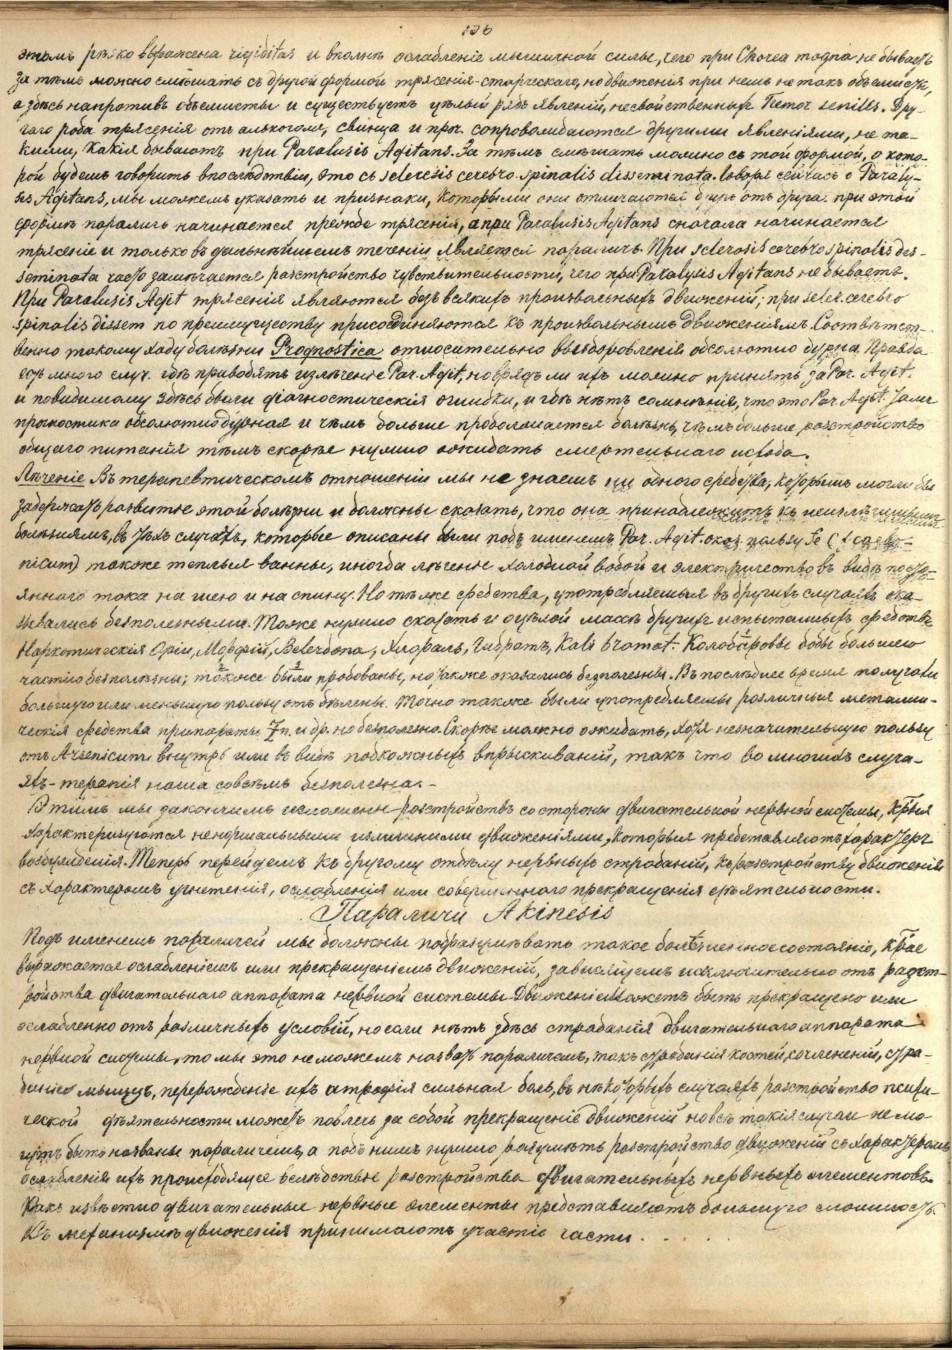 126
этомъ рѣзко выражена rigiditas и вполнѣ ослабленіе мышичной силы, чего при Chorea magna не бываетъ
За тѣмъ можно смѣшать съ другой формой трясенія-старческаго, но движенія при немъ не такъ объемисты,
а здѣсь напротивъ объемисты и существуетъ цѣлый рядъ явленій, несвойственныхъ Tremor senilis. Дру-
гаго рода трясенія отъ алькоголя, свинца и проч. сопровождаются другими явленіями, не та-
кими, какія бываютъ при Paralysis Agitans. За тѣмъ смѣшать можно съ той формой, о кото-
рой будемъ говорить впослѣдствіи, это съ sclerosis cerebro-spinalis disseminata. Говоря сейчасъ о Paraly-
sis Agitans, мы можемъ указать и признаки, которыми они отличаются другъ отъ друга: при этой
формѣ параличъ начинается прежде трясенія, а при Paralysis Agitans сначала начинается
трясеніе и только въ дальнѣйшемъ теченіи является параличъ. При sclerosis cerebro spinalis dis-
seminata часто замѣчается разстройство чувствительности, чего при Paralysis Agitans не бываетъ.
При Paralysis Agit трясенія являются безъ всякихъ произвольныхъ движеній; при scler. cerebro
spinalis dissem по преимуществу присоединяются къ произвольнымъ движеніямъ. Соотвѣтст-
венно такому ходу болѣзни Prognostica относительно выздоровленія абсолютно дурна. Правда
есть много случ. гдѣ приводятъ излѣченіе Par. Agit, но врядъ ли ихъ можно принять за Par. Agit.
и повидимому здѣсь были діагностическія ошибки, и гдѣ нѣтъ сомнѣнія, что это Par. Agit. тамъ
прогностика абсолютно дурная и чѣмъ больше продолжается болѣзнь, чѣмъ больше разстройство
общаго питанія тѣмъ скорѣе нужно ожидать смертельнаго исхода.
Лѣченіе Въ терапевтическомъ отношеніи мы не знаемъ ни одного средства, которымъ могли бы
задержать развитіе этой болѣзни и должны сказать, что она принадлежитъ къ неизлѣчимымъ
болѣзнямъ, въ тѣхъ случаяхъ, которые описаны были подъ именемъ Par. Agit. оказ. пользу Fe
также теплыя ванны, иногда лѣченіе холодной водой и электричество въ видѣ посто-
яннаго тока на шею и на спину. Но тѣже средства, употребляемыя въ другихъ случаяхъ ока-
зывались безполезными. Тоже нужно сказать и о цѣлой массѣ другихъ испытанныхъ средствъ
Наркотическія Opiи, Морфій, Beladona, Хлоралъ, Kali bromat. воды большею
частію безполезны; также были пробованы, но также оказались безполезны. Въ послѣднее время получали
большую или меньшую пользу отъ бѣлены. Точно также были употребляемы различныя металли-
ческія средства препараты Zn. и др. но безполезно. Скорѣе можно ожидать, хотя незначительную пользу
отъ Arsenicum внутрь или въ видѣ подкожныхъ впрыскиваній, такъ что во многихъ случа-
яхъ - терапія наша совсѣмъ безполезна.
Этимъ мы закончимъ изложеніе разстройствъ со стороны двигательной нервной системы, крыя
характеризуются ненормальными излишними движеніями, которыя представляютъ характеръ
возбужденія. Теперь перейдемъ къ другому отдѣлу нервныхъ страданій, къ разстройству движенія
съ характеромъ угнетенія, ослабленія или совершеннаго прекращенія дѣятельности.
Параличи Akinesis
Подъ именемъ параличей мы должны подразумѣвать такое болѣзненное состояніе, крое
выражается ослабленіемъ или прекращеніемъ движеній, зависящемъ исключительно отъ разст-
ройства двигательнаго аппарата нервной системы. Движеніе можетъ быть прекращено или
ослабленно отъ различныхъ условій, но если нѣтъ здѣсь страданія двигательнаго аппарата
нервной системы, то мы это не можемъ назвать параличемъ, такъ страданія костей, сочлененій, стра-
даніе мышцъ, перерожденіе ихъ атрофія сильная боль, въ нѣкоторыхъ случаяхъ разстройство психи-
ческой дѣятельности можетъ повлечь за собой прекращеніе движеній но всѣ такія случаи не мо-
гутъ быть названы параличемъ, а подъ нимъ нужно разумѣть разстройство движеній съ характеромъ
ослабленія ихъ происходящее вслѣдствіе разстройства двигательныхъ нервныхъ элементовъ.
Какъ извѣстно двигательные нервные элементы представляютъ большую сложность.
Въ механизмѣ движенія принимаютъ участіе части . . . . .